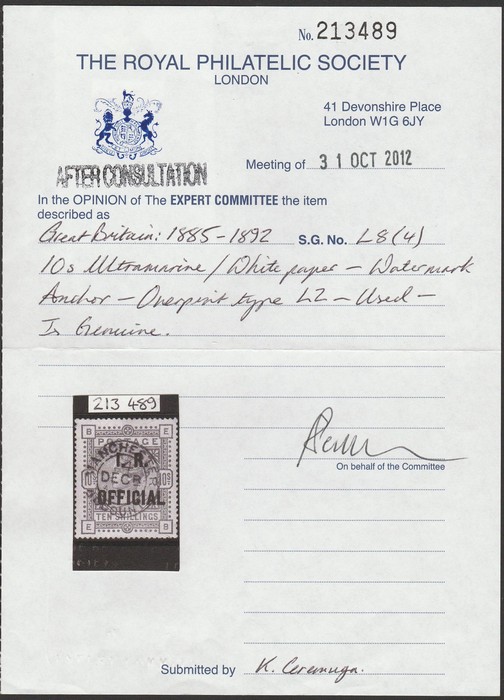 No. 213489
THE ROYAL PHILATELIC SOCIETY
LONDON
41 Devonshire Place
London W1G 6JY
AFTER CONSULTATION
Meeting of 31 OCT 2012
In the OPINION of The EXPERT COMMITTEE the item
described as
Great Britain: 1885-1892 S.G. No. L8(4)
10s Ultramarine / White paper - Watermark
Anchor - Overprint type L2 - Used -
Is Genuine.
213 489
B E
POSTAGE
I. R.
MANCHESTER
DEC 8
10s 10s
OFFICIAL
TEN SHILLINGS
E B
On behalf of the Committee
Submitted by K. Ceremuga.